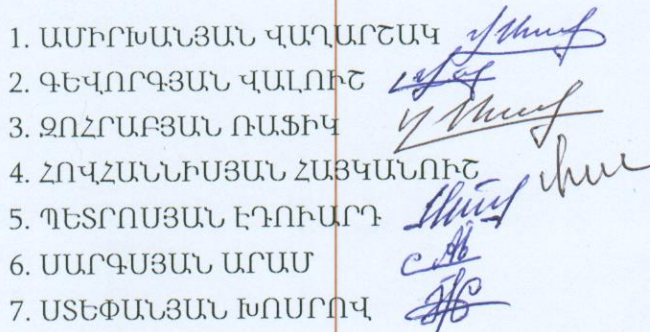 1. ԱՄԻՐԽԱՆՅԱՆ ՎԱՂԱՐՇԱԿ
2. ԳԵՎՈՐԳՅԱՆ ՎԱԼՈՒՇ
3. ԶՈՀՐԱԲՅԱՆ ՌԱՖԻԿ
4. ՀՈՎՀԱՆՆԻՍՅԱՆ ՀԱՅԿԱՆՈՒՇ
5. ՊԵՏՐՈՍՅԱՆ ԷԴՈՒԱՐԴ
6. ՍԱՐԳՍՅԱՆ ԱՐԱՄ
7. ՍՏԵՓԱՆՅԱՆ ԽՈՍՐՈՎ